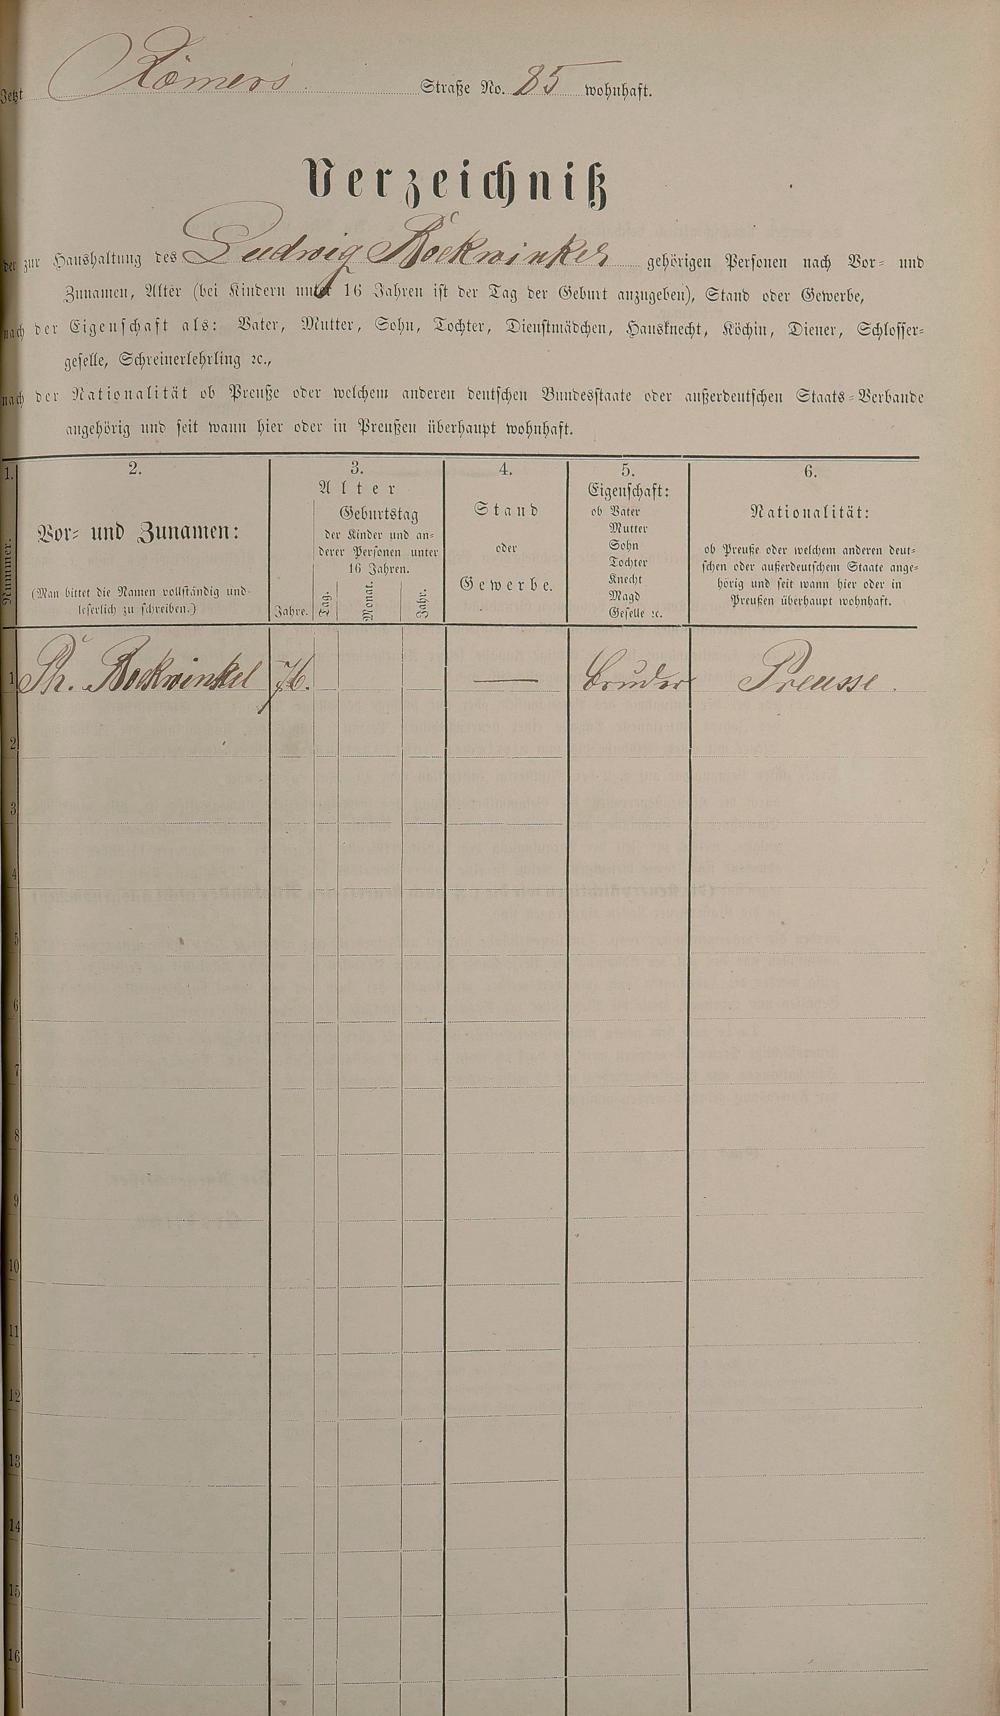 Jetzt Römers Straße No. 25 wohnhaft.
Verzeichniß
der zur Haushaltung des Ludwig Bockwinkel gehörigen Personen nach Vor- und
Zunamen, Alter (bei Kindern unter 16 Jahren ist der Tag der Geburt anzugeben), Stand oder Gewerbe,
nach der Eigenschaft als: Vater, Mutter, Sohn, Tochter, Dienstmädchen, Hausknecht, Köchin, Diener, Schlosser-
geselle, Schreinerlehrling ꝛc.,
nach der Nationalität ob Preuße oder welchem anderen deutschen Bundesstaate oder außerdeutschen Staats-Verbande
angehörig und seit wann hier oder in Preußen überhaupt wohnhaft.
1.
Nummer.
2.
Vor- und Zunamen:
(Man bittet die Namen vollständig und
leserlich zu schreiben.)
3.
Alter
Jahre.
Geburtstag
der Kinder und an-
derer Personen unter
16 Jahren.
Tag.
Monat.
Jahr.
4.
Stand
oder
Gewerbe.
5.
Eigenschaft:
ob Vater
Mutter
Sohn
Tochter
Knecht
Magd
Geselle ꝛc.
6.
Nationalität:
ob Preuße oder welchem anderen deut-
schen oder außerdeutschem Staate ange-
hörig und seit wann hier oder in
Preußen überhaupt wohnhaft.
1 Ph. Bockwinkel 76. — Bruder Preusse.
2
3
4
5
6
7
8
9
10
11
12
13
14
15
16